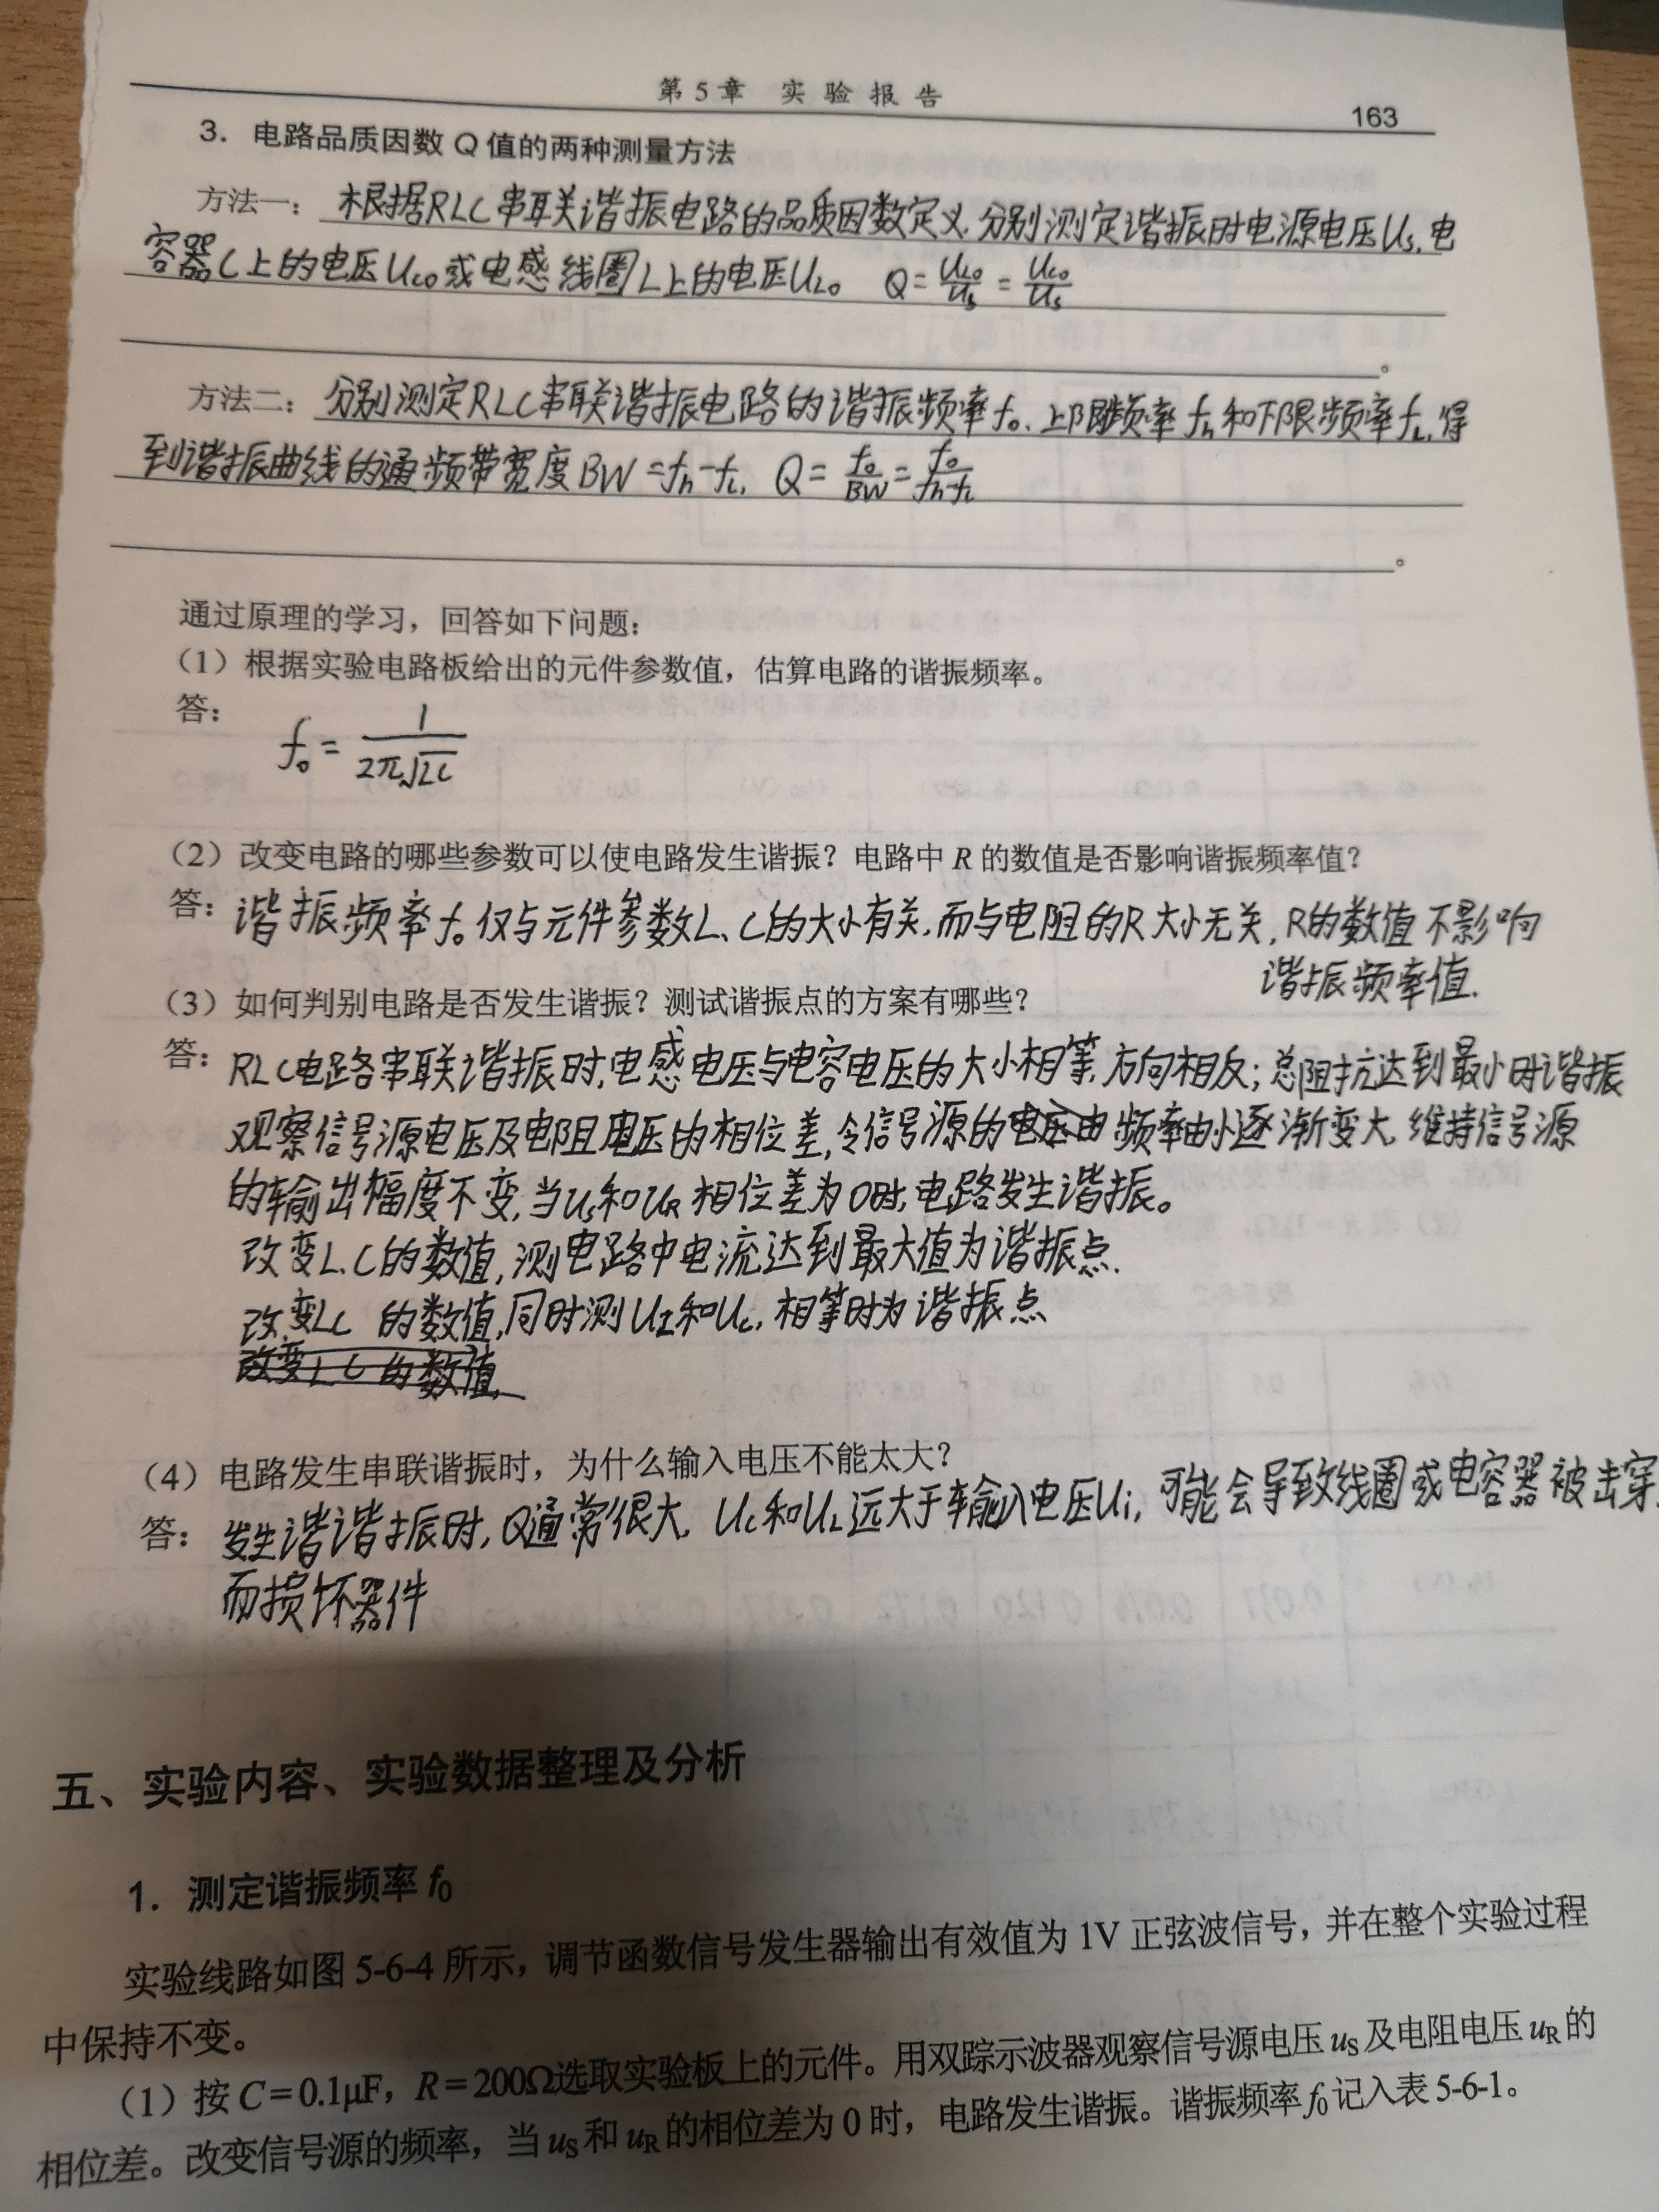 第5章 实验报告
163
3. 电路品质因数 Q 值的两种测量方法
方法一: 根据RLC串联谐振电路的品质因数定义,分别测定谐振时电源电压Us,电
容器C上的电压Uco或电感线圈L上的电压ULo。 Q=ULo/Us=Uco/Us
。
方法二: 分别测定RLC串联谐振电路的谐振频率fo、上限频率fh和下限频率fL,得
到谐振曲线的通频带宽度BW=fh-fL, Q=fo/BW=fo/(fh-fL)
。
通过原理的学习,回答如下问题:
(1)根据实验电路板给出的元件参数值,估算电路的谐振频率。
答:
fo=1/(2π√LC)
(2)改变电路的哪些参数可以使电路发生谐振?电路中 R 的数值是否影响谐振频率值?
答: 谐振频率fo仅与元件参数L、C的大小有关,而与电阻的R大小无关,R的数值不影响
谐振频率值.
(3)如何判别电路是否发生谐振?测试谐振点的方案有哪些?
答: RLC电路串联谐振时,电感电压与电容电压的大小相等,方向相反;总阻抗达到最小时谐振
观察信号源电压及电阻电压的相位差,令信号源的电压由频率由小逐渐变大,维持信号源
的输出幅度不变,当us和uR相位差为0时,电路发生谐振。
改变L.C的数值,测电路中电流达到最大值为谐振点.
改变LC 的数值,同时测UL和Uc,相等时为谐振点
改变LC的数值,
(4)电路发生串联谐振时,为什么输入电压不能太大?
答: 发生谐谐振时,Q通常很大,Uc和UL远大于输入电压Ui,可能会导致线圈或电容器被击穿,
而损坏器件
五、实验内容、实验数据整理及分析
1. 测定谐振频率 f0
实验线路如图 5-6-4 所示,调节函数信号发生器输出有效值为 1V 正弦波信号,并在整个实验过程
中保持不变。
(1)按 C=0.1μF,R=200Ω选取实验板上的元件。用双踪示波器观察信号源电压 uS 及电阻电压 uR 的
相位差。改变信号源的频率,当 uS 和 uR 的相位差为 0 时,电路发生谐振。谐振频率 f0 记入表 5-6-1。